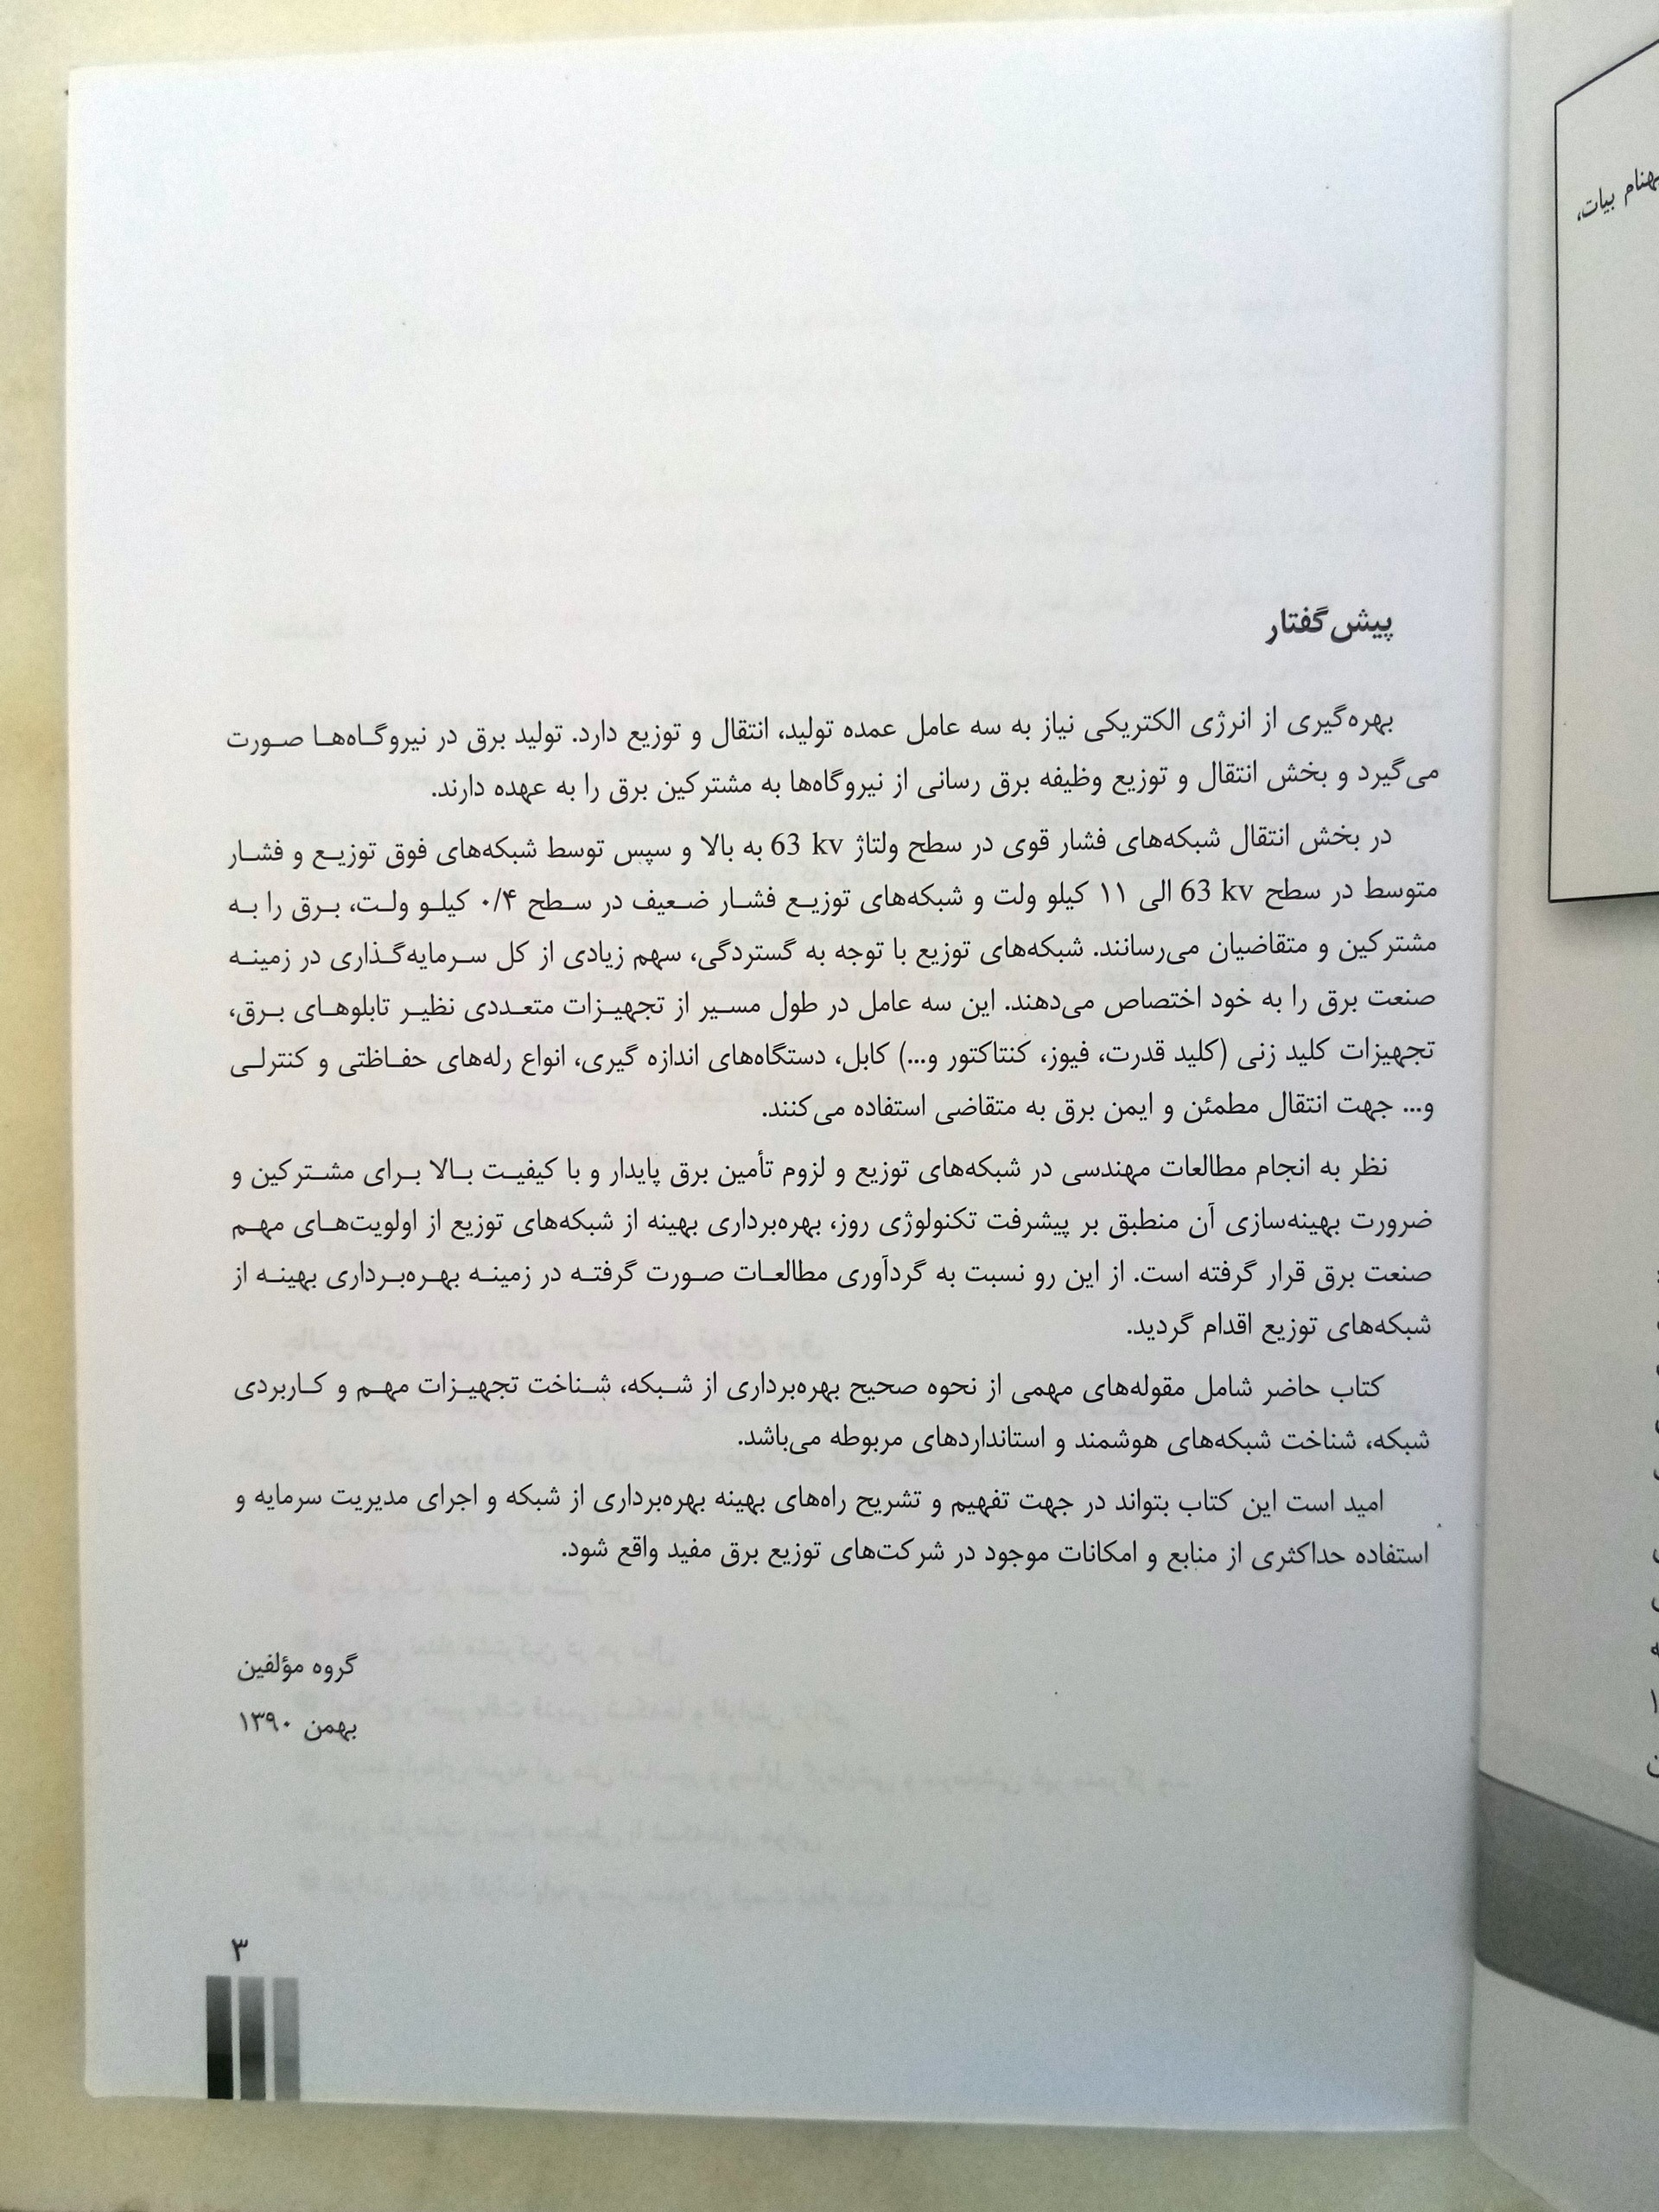 پیش گفتار
بهره‌گیری از انرژی الکتریکی نیاز به سه عامل عمده تولید، انتقال و توزیع دارد. تولید برق در نیروگاه‌ها صورت
می‌گیرد و بخش انتقال و توزیع وظیفه برق رسانی از نیروگاه‌ها به مشترکین برق را به عهده دارند.
در بخش انتقال شبکه‌های فشار قوی در سطح ولتاژ 63 kv به بالا و سپس توسط شبکه‌های فوق توزیع و فشار
متوسط در سطح 63 kv الی ۱۱ کیلو ولت و شبکه‌های توزیع فشار ضعیف در سطح ۰/۴ کیلو ولت، برق را به
مشترکین و متقاضیان می‌رسانند. شبکه‌های توزیع با توجه به گستردگی، سهم زیادی از کل سرمایه‌گذاری در زمینه
صنعت برق را به خود اختصاص می‌دهند. این سه عامل در طول مسیر از تجهیزات متعددی نظیر تابلوهای برق،
تجهیزات کلید زنی (کلید قدرت، فیوز، کنتاکتور و...) کابل، دستگاه‌های اندازه گیری، انواع رله‌های حفاظتی و کنترلی
و... جهت انتقال مطمئن و ایمن برق به متقاضی استفاده می‌کنند.
نظر به انجام مطالعات مهندسی در شبکه‌های توزیع و لزوم تأمین برق پایدار و با کیفیت بالا برای مشترکین و
ضرورت بهینه‌سازی آن منطبق بر پیشرفت تکنولوژی روز، بهره‌برداری بهینه از شبکه‌های توزیع از اولویت‌های مهم
صنعت برق قرار گرفته است. از این رو نسبت به گردآوری مطالعات صورت گرفته در زمینه بهره‌برداری بهینه از
شبکه‌های توزیع اقدام گردید.
کتاب حاضر شامل مقوله‌های مهمی از نحوه صحیح بهره‌برداری از شبکه، شناخت تجهیزات مهم و کاربردی
شبکه، شناخت شبکه‌های هوشمند و استانداردهای مربوطه می‌باشد.
امید است این کتاب بتواند در جهت تفهیم و تشریح راه‌های بهینه بهره‌برداری از شبکه و اجرای مدیریت سرمایه و
استفاده حداکثری از منابع و امکانات موجود در شرکت‌های توزیع برق مفید واقع شود.
گروه مؤلفین
بهمن ۱۳۹۰
۳
بیات،